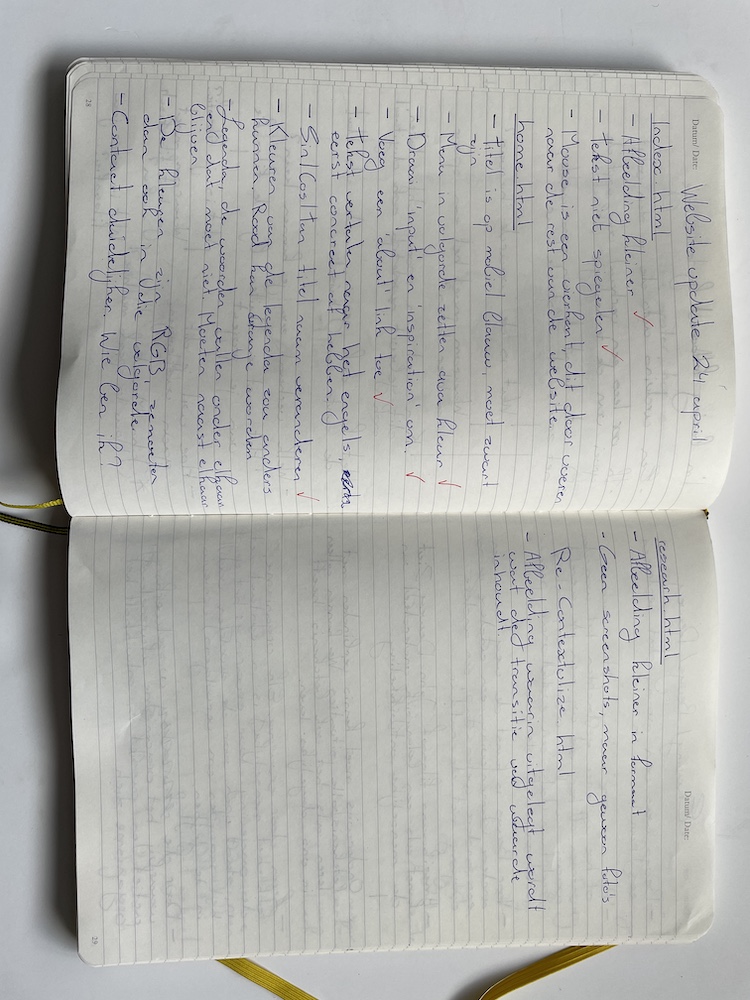 Datum/ Date: Website update 24 april
Index.html
- Afbeelding kleiner ✓
- Tekst niet spiegelen ✓
- Mouse is een vierkant, dit door voeren
naar de rest van de website.
home.html
- Titel is op mobiel blauw, moet zwart
zijn
- Menu in volgorde zetten qua kleur ✓
- Draai 'input' en 'inspiration' om. ✓
- Voeg een 'about' link toe ✓
- Tekst vertalen naar het engels,
eerst concreet af hebben.
- Sin/Cos/tan titel naam veranderen ✓
- Kleuren van de legenda zou anders
kunnen. Rood kan oranje worden
- Legenda, de woorden vallen onder elkaar
en dat moet niet. Moeten naast elkaar
blijven.
- De kleuren zijn RGB, ze moeten
dan ook in die volgorde.
- Contact duidelijker. Wie ben ik?
28
Datum/ Date:
researh.html
- Afbeelding kleiner in formaat
- Geen screenshots, maar gewoon foto's
Re-Contextulize.html
- Afbeelding waarin uitgelegt wordt
wat de transitie van waarde
inhoudt.
29